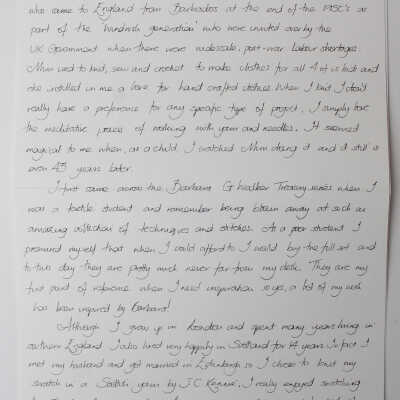 who came to England from Barbados at the end of the 1950's as
part of the 'windrush generation' who were invited over by the
UK Government when there were widescale, post-war labour shortages.
Mum used to knit, sew and crochet to make clothes for all 4 of us kids and
she instilled in me a love for hand crafted clothes. When I knit, I don't
really have a preference for any specific type of project, I simply love
the meditative process of working with yarn and needles. It seemed
magical to me when, as a child, I watched Mum doing it and it still is
even 45 years later.
I first came across the Barbara G Walker Treasury series when I
was a textile student and remember being blown away at such an
amazing collection of techniques and stitches. As a poor student I
promised myself that when I could afford to I would buy the full set and
to this day they are pretty much never far from my desk. They are my
first point of reference when I need inspiration so yes, a lot of my work
has been inspired by Barbara!
Although I grew up in London and spent many years living in
southern England I also lived very happily in Scotland for 14 years. In fact I
met my husband and got married in Edinburgh so I chose to knit my
swatch in a Scottish yarn by J.C. Rennie. I really enjoyed swatching